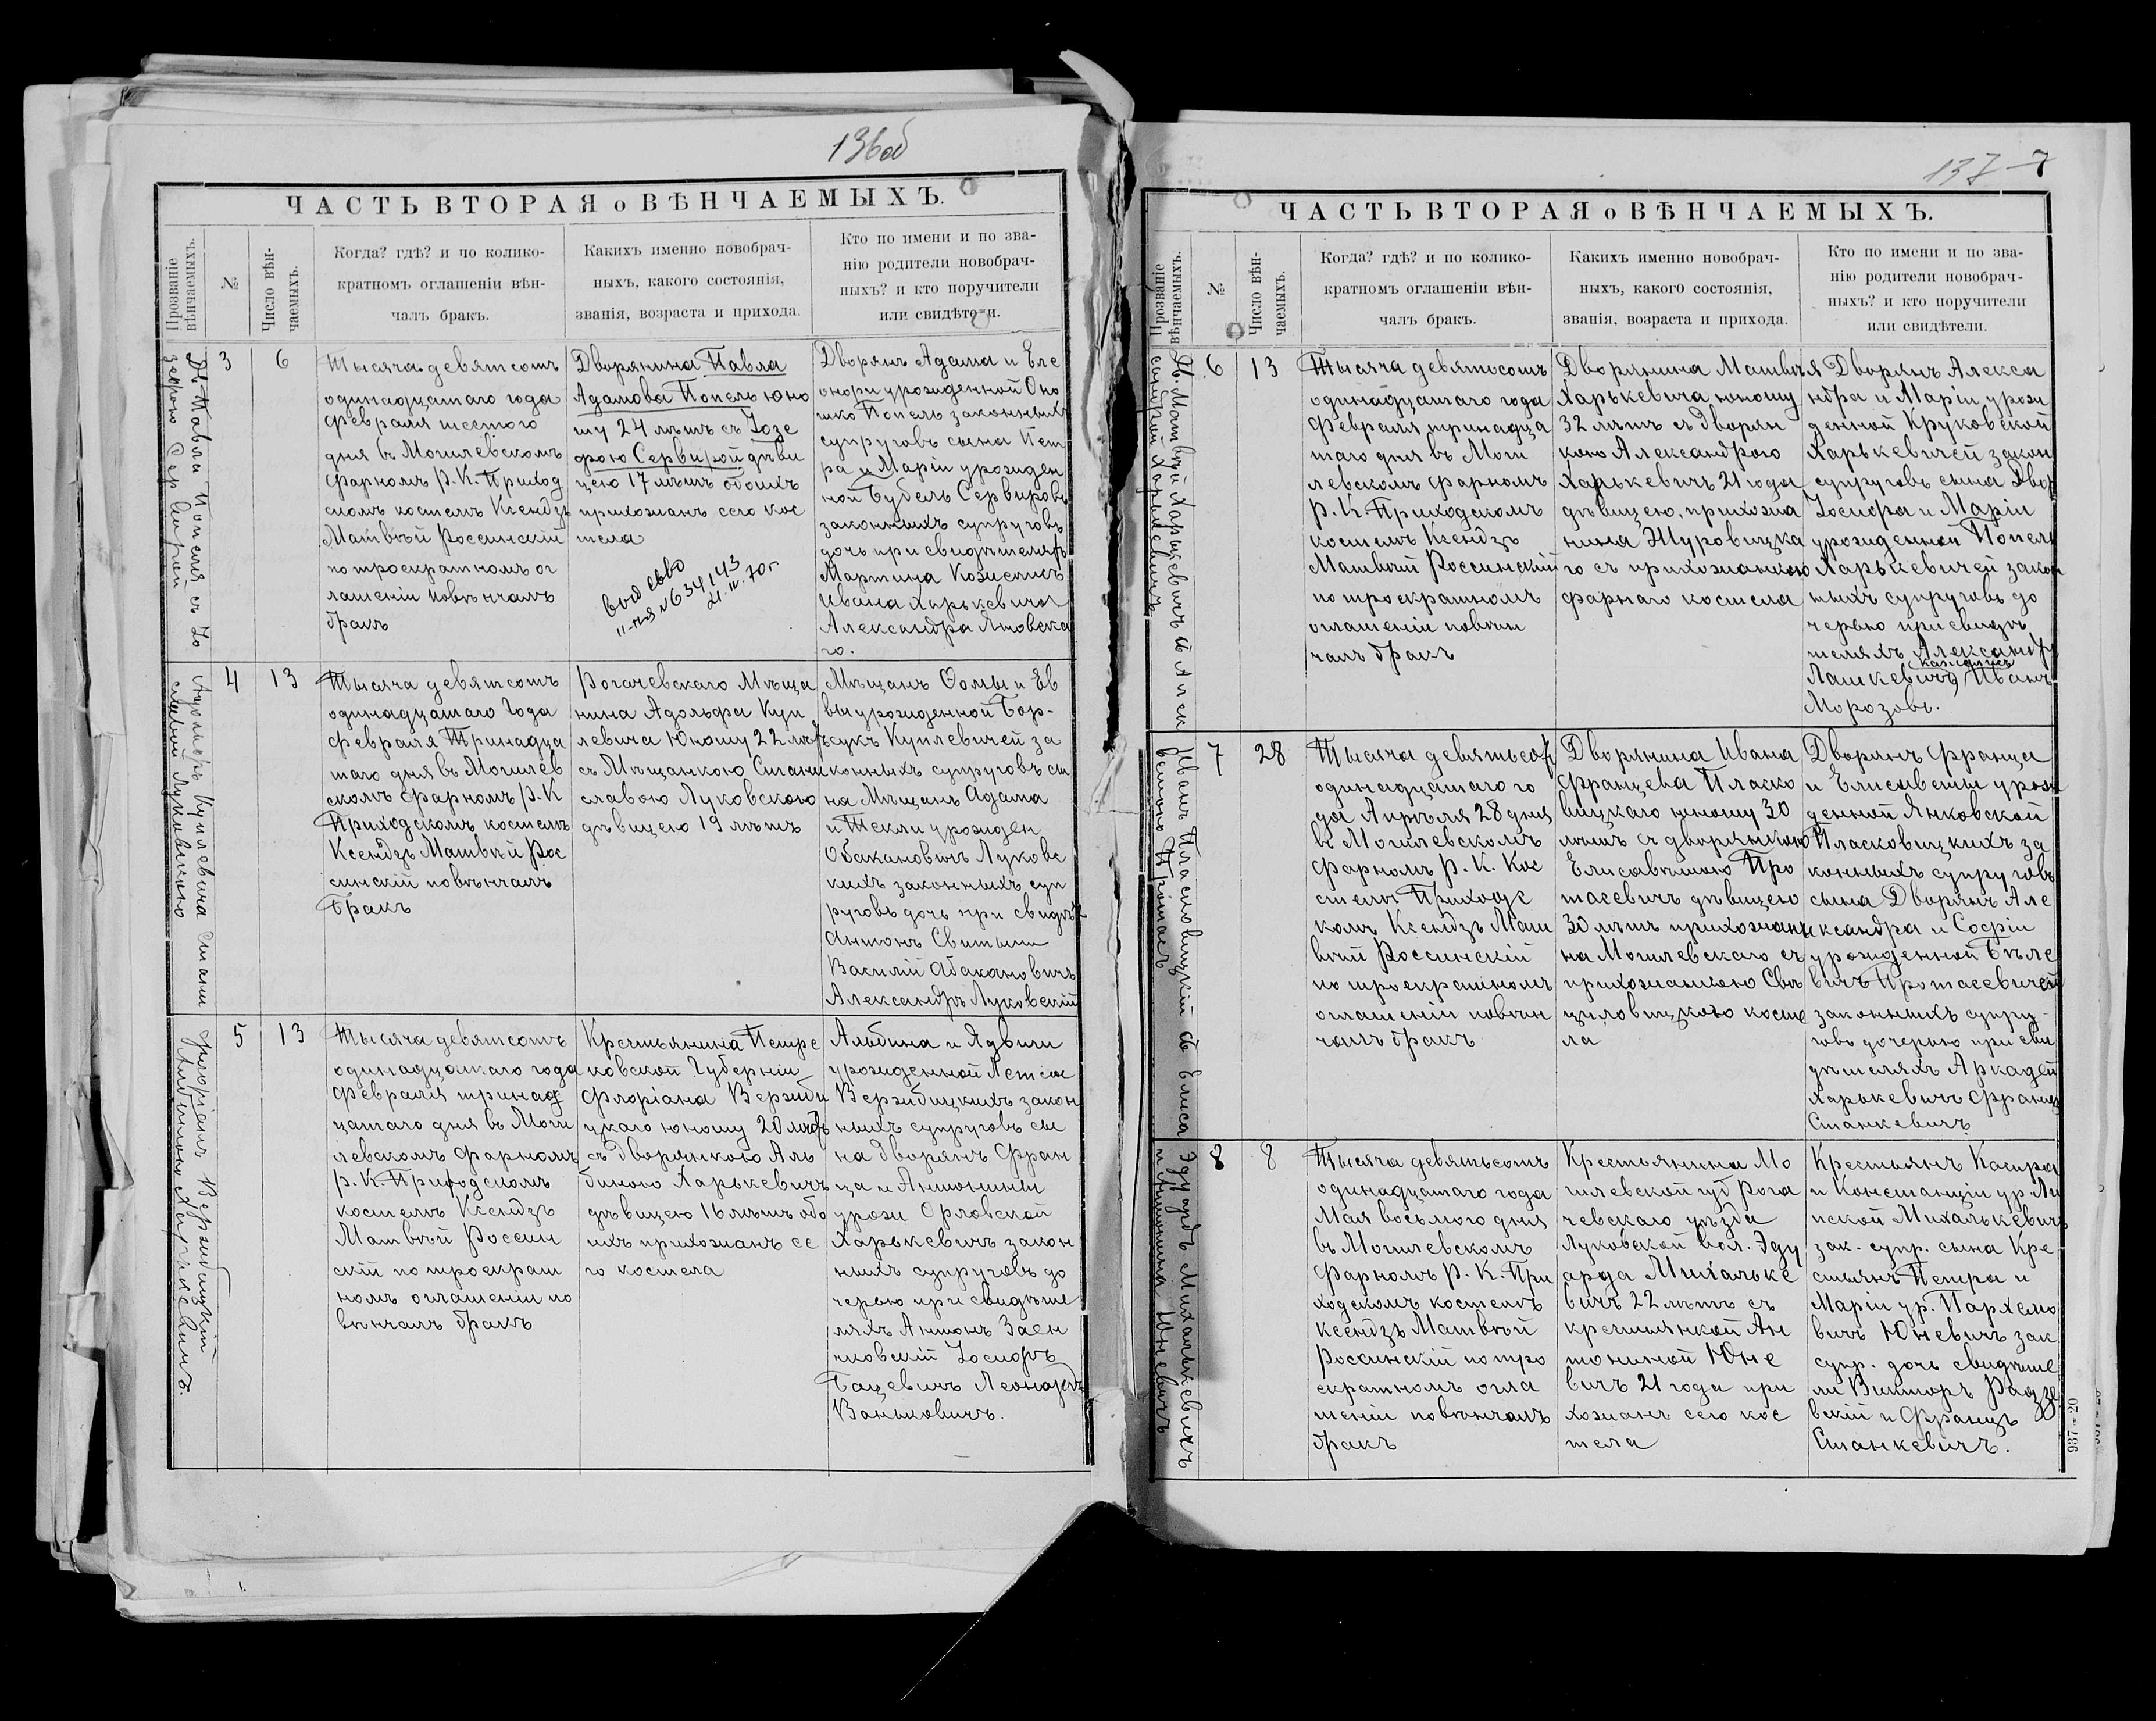 136об
ЧАСТЬ ВТОРАЯ о ВѢНЧАЕМЫХЪ.
Прозваніе вѣнчаемыхъ.
№
Число вѣнчаемыхъ.
Когда? гдѣ? и по колико-
кратномъ оглашеніи вѣн-
чалъ бракъ.
Какихъ именно новобрач-
ныхъ, какого состоянія,
званія, возраста и прихода.
Кто по имени и по зва-
нію родители новобрач-
ныхъ? и кто поручители
или свидѣтели.
Дв. Павла Попеля съ Іо
зефою Сервирой
3
6
Тысяча девятсотъ
одинадцатаго года
Февраля шестого
дня въ Могилевскомъ
фарномъ Р. К. Приход
скомъ костелѣ Ксендзъ
Матвѣй Россинскій
по троекратномъ ог
лашеніи повѣнчалъ
бракъ
Дворянина Павла
Адамова Попель юно
шу 24 лѣтъ съ Іозе
фою Сервирой дѣви
цею 17 лѣтъ обоихъ
прихожанъ сего кос
тела
Дворянъ Адама и Еле
оноры урожденной Оно
шко Попель законныхъ
супруговъ сына Пет
ра и Маріи урожден
ной Бубель Сервировъ
законныхъ супруговъ
дочь при свидѣтеляхъ
Мартина Кожемякъ
Ивана Харкевича
Александра Яновска
го.
Адольфъ Куплевича Стани
славой Луковскою
4
13
Тысяча девятсотъ
одинадцатаго года
февраля Тринадца
таго дня въ Могилев
скомъ фарномъ Р. К
Приходскомъ костелѣ
Ксендзъ Матвѣй Рос
синскій повѣнчалъ
бракъ
Рогачевскаго Мѣща
нина Адольфа Куп
левича Юношу 22 лѣтъ
съ Мѣщанкою Стани
славою Луковскою
дѣвицею 19 лѣтъ
Мѣщанъ Ѳомы и Ев
вы урожденной Бор-
сукъ Куплевичей за
конныхъ супруговъ сы
на Мѣщанъ Адама
и Текли урожден
Обакановичъ Луковс
кихъ законныхъ суп
руговъ дочь при свидѣт
Антонъ Свитыш
Василій Абакановичъ
Александръ Луковскій
Флоріанъ Вержбицкій
Альбиною Харькевичъ.
5
13
Тысяча девятсотъ
одинадцатаго года
Февраля тринад
цатаго дня въ Моги
левскомъ фарномъ
Р. К. Приходскомъ
костелѣ Ксендзъ
Матвѣй Россин
скій по троекрат
номъ оглашеніи по
вѣнчалъ бракъ
Крестьянина Петро
ковской Губерніи
Флоріана Вержби
цкаго юношу 20 лѣтъ
съ дворянкою Аль
биною Харькевичъ
дѣвицею 16 лѣтъ обо
ихъ прихожанъ се
го костела
Альбина и Ядвиги
урожденной
Вержбицкихъ закон
ныхъ супруговъ сы
на дворянъ Фран
ца и Антонины
урожд Орловской
Харькевичъ закон
ныхъ супруговъ до
черью при свидѣте
ляхъ Антонъ Заен
чковскій Іосифъ
Бацевичъ Леонардъ
Ваньковичъ.
137
7
ЧАСТЬ ВТОРАЯ о ВѢНЧАЕМЫХЪ.
Прозваніе вѣнчаемыхъ.
№
Число вѣнчаемыхъ.
Когда? гдѣ? и по колико-
кратномъ оглашеніи вѣн-
чалъ бракъ.
Какихъ именно новобрач-
ныхъ, какого состоянія,
званія, возраста и прихода.
Кто по имени и по зва-
нію родители новобрач-
ныхъ? и кто поручители
или свидѣтели.
Дв. Матвѣй Харькевичъ съ Алек
сандрой Харькевичъ
6
13
Тысяча девятьсотъ
одинадцатаго года
Февраля тринадца
таго дня въ Моги
левскомъ фарномъ
Р. К. Приходскомъ
костелѣ Ксендзъ
Матвѣй Россинскій
по троекратномъ
оглашеніи повѣн
чалъ бракъ
Дворянина Матвѣя
Харькевича юношу
32 лѣтъ съ дворян
кою Александрою
Харькевичъ 21 года
дѣвицею, прихожа
нина Журовицка
го съ прихожанкою
фарнаго костела
Дворянъ Алекса
ндра и Маріи урож
денной Круковской
Харькевичей закон
супруговъ сына Двор
Іосифа и Маріи
урожденной Попель
Харькевичей закон
ныхъ супруговъ до
черью при свидѣ
теляхъ Александръ
Лашкевичъ, Иванъ
Морозовъ.
Иванъ Пласковицкій съ Елиса
ветою Протасев
7
28
Тысяча девятьсот
одинадцатаго го
да Апрѣля 28 дня
въ Могилевскомъ
фарномъ Р. К. Кос
телѣ Приходс
комъ Ксендзъ Мат
вѣй Россинскій
по троекратномъ
оглашеніи повѣн
чалъ бракъ
Дворянина Ивана
Францева Пласко
вицкаго юношу 30
лѣтъ съ дворянкою
Елисаветою Про
тасевичъ дѣвицею
30 лѣтъ прихожани
на Могилевскаго съ
прихожанкою Свѣ
циловицкою косте
ла
Дворянъ Франца
и Елисаветы урож
денной Янковской
Пласковицкихъ за
конныхъ супруговъ
сына Дворянъ Але
ксандра и Софіи
урожденной Бѣле
вичъ Протасевичей
законныхъ супру-
говъ дочерью при сви
дѣтеляхъ Аркадей
Харькевичъ Францъ
Станкевичъ
Эдуардъ Михалькевичъ
и Антонина Юневичъ
8
8
Тысяча девятьсотъ
одинадцатаго года
Мая восьмого дня
въ Могилевскомъ
фарномъ Р. К. При
ходскомъ костелѣ
Ксендзъ Матвѣй
Россинскій по тро
екратномъ огла
шеніи повѣнчалъ
бракъ
Крестьянина Мо
гилевской губ Рога
чевскаго уѣзда
Луковской вол. Эду
арда Михальке
вичъ 22 лѣтъ съ
крестьянкой Ан
тониной Юне
вичъ 21 года при
хожанъ сего кос
тела
Крестьянъ Каспра
и Констанціи ур Ли
пской Михалькевичъ
зак. супр. сына Кре
стьянъ Петра и
Маріи ур. Пархемо
вичъ Юневичъ зак
супр. дочь свидѣте
ли Викторъ Радзе
вскій и Францъ
Станкевичъ.
937—20